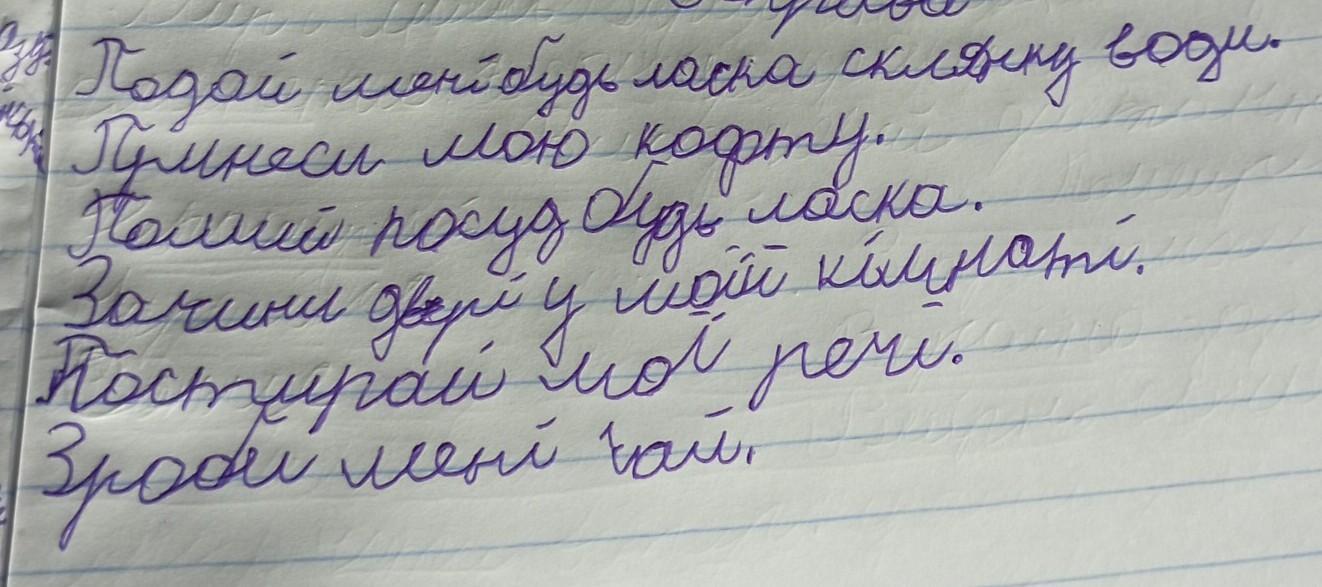 Подай мені будь ласка склянку води.
Принеси мою кофту.
Помий посуд будь ласка.
Зачини двері у моїй кімнаті.
Постирай мої речі.
Зроби мені чай.